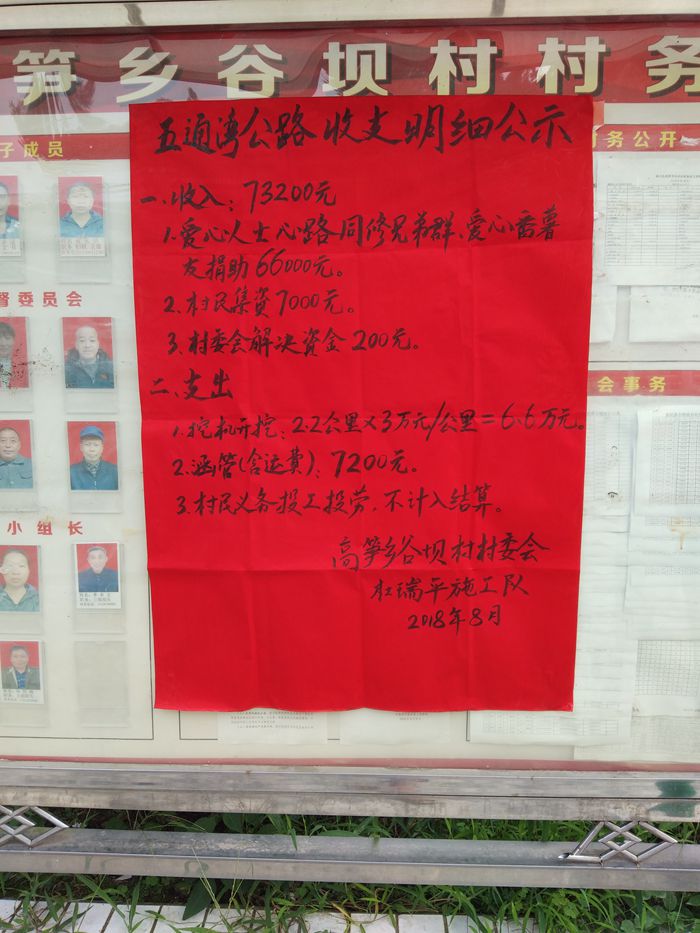 笋乡谷坝村村务
子成员
务公开
五通湾公路收支明细公示
一、收入：73200元
1.爱心人士心路同修兄弟群、爱心番薯
友捐助66000元。
2.村民集资7000元。
3.村委会解决资金200元。
督委员会
二、支出
会事务
1.挖机开挖：2.2公里×3万元/公里=6.6万元。
2.涵管(含运费)：7200元。
3.村民义务投工投劳，不计入结算。
小组长
高笋乡谷坝村村委会
杜瑞平施工队
2018年8月